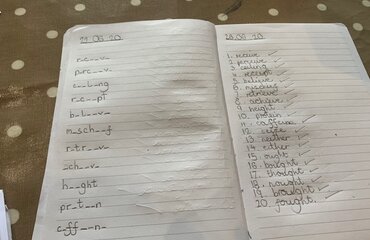 29.06.20.
r_c__v_
p_rc__v_
c__l_ng
r_c__pt
b_l__v_
m_sch__f
r_tr__v_
_ch__v_
h__ght
pr_t__n
c_ff__n_
29.06.20.
1. receive
2. perceive
3. ceiling
4. receipt
5. believe
6. mischief
7. retrieve
8. achieve
9. height
10. protein
11. caffeine
12. seize
13. neither
14. either
15. ought
16. bought
17. thought
18. nought
19. brought
20. fought